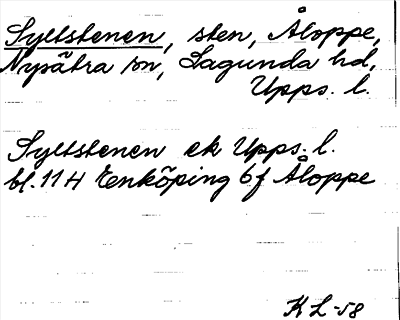 Syltstenen, sten, Åloppe,
Nysätra sn, Lagunda hd,
Upps. l.
Syltstenen ek Upps. l.
bl. 11 H Enköping 6f Åloppe
K L -58